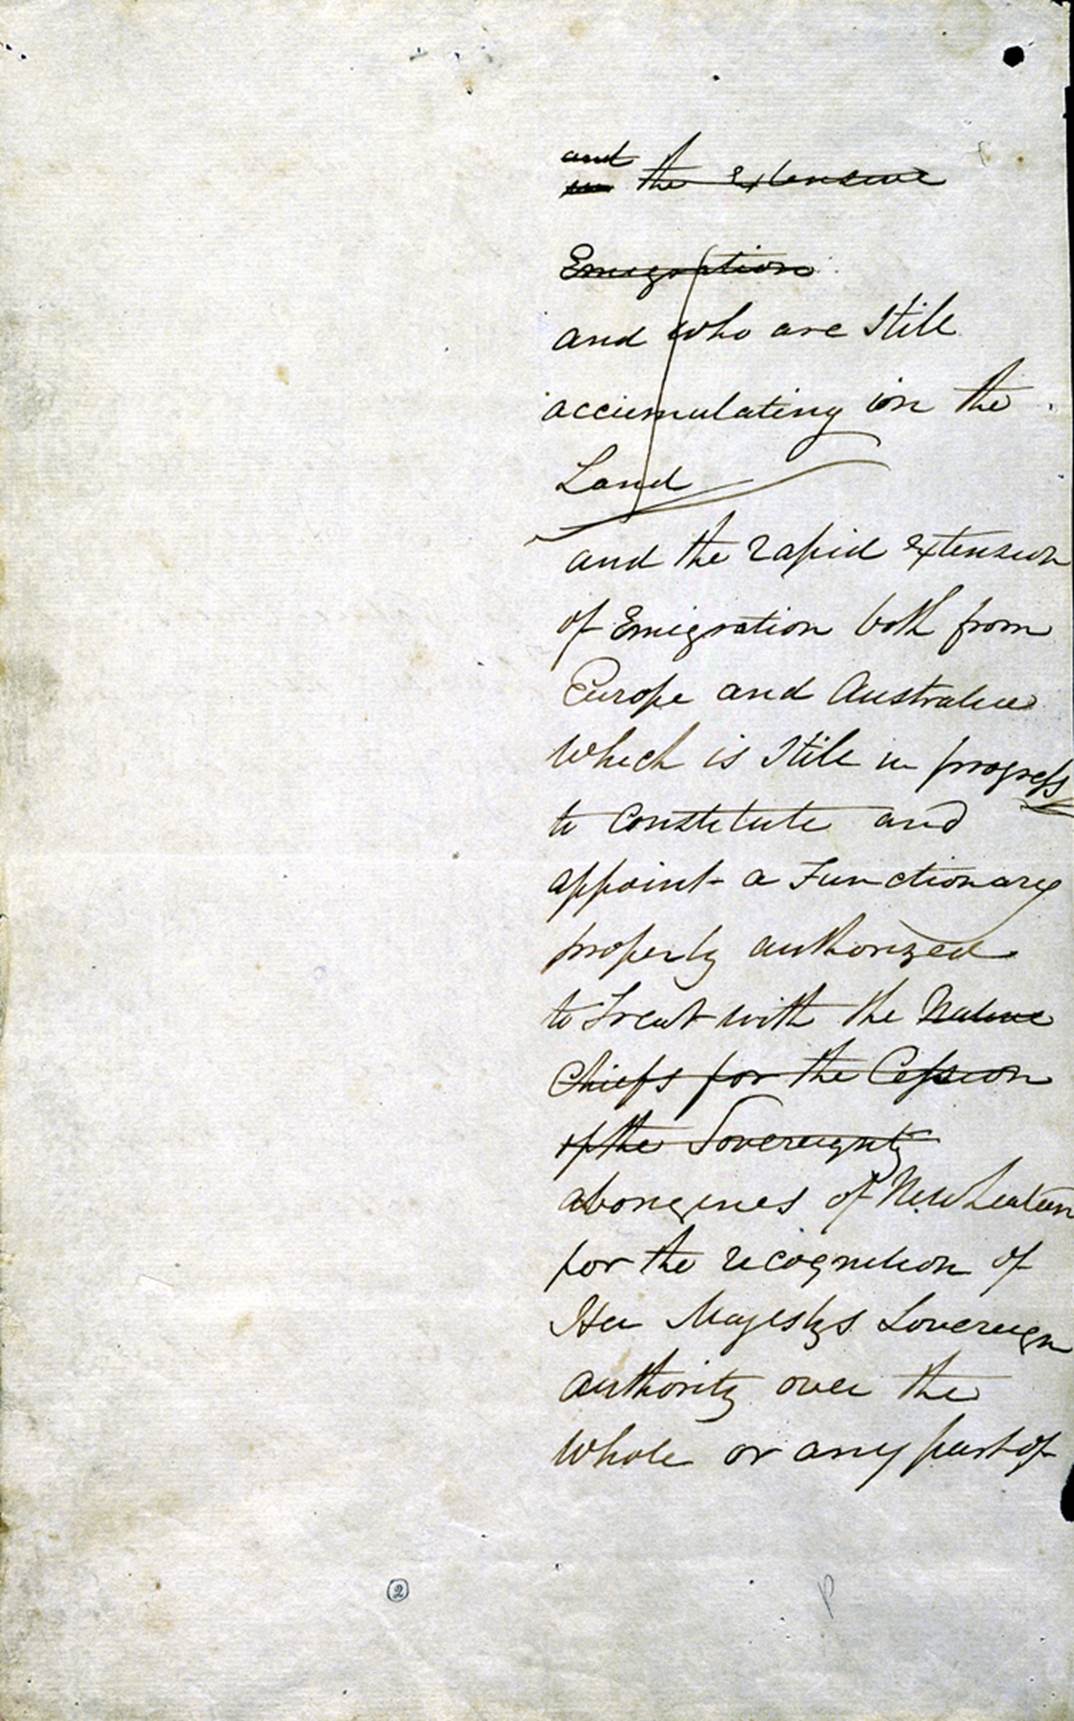 and
the extensive
Emigration
and who are Still
accumulating in the
Land
and the rapid extension
of Emigration both from
Europe and Australia
which is Still in progress
to Constitute and
appoint a Functionary
properly authorized
to Treat with the Native
Chiefs for the Cession
of the Sovereignty
aborigines of New Zealan
for the recognition of
Her Majestys Sovereign
authority over the
whole or any part of
2
P